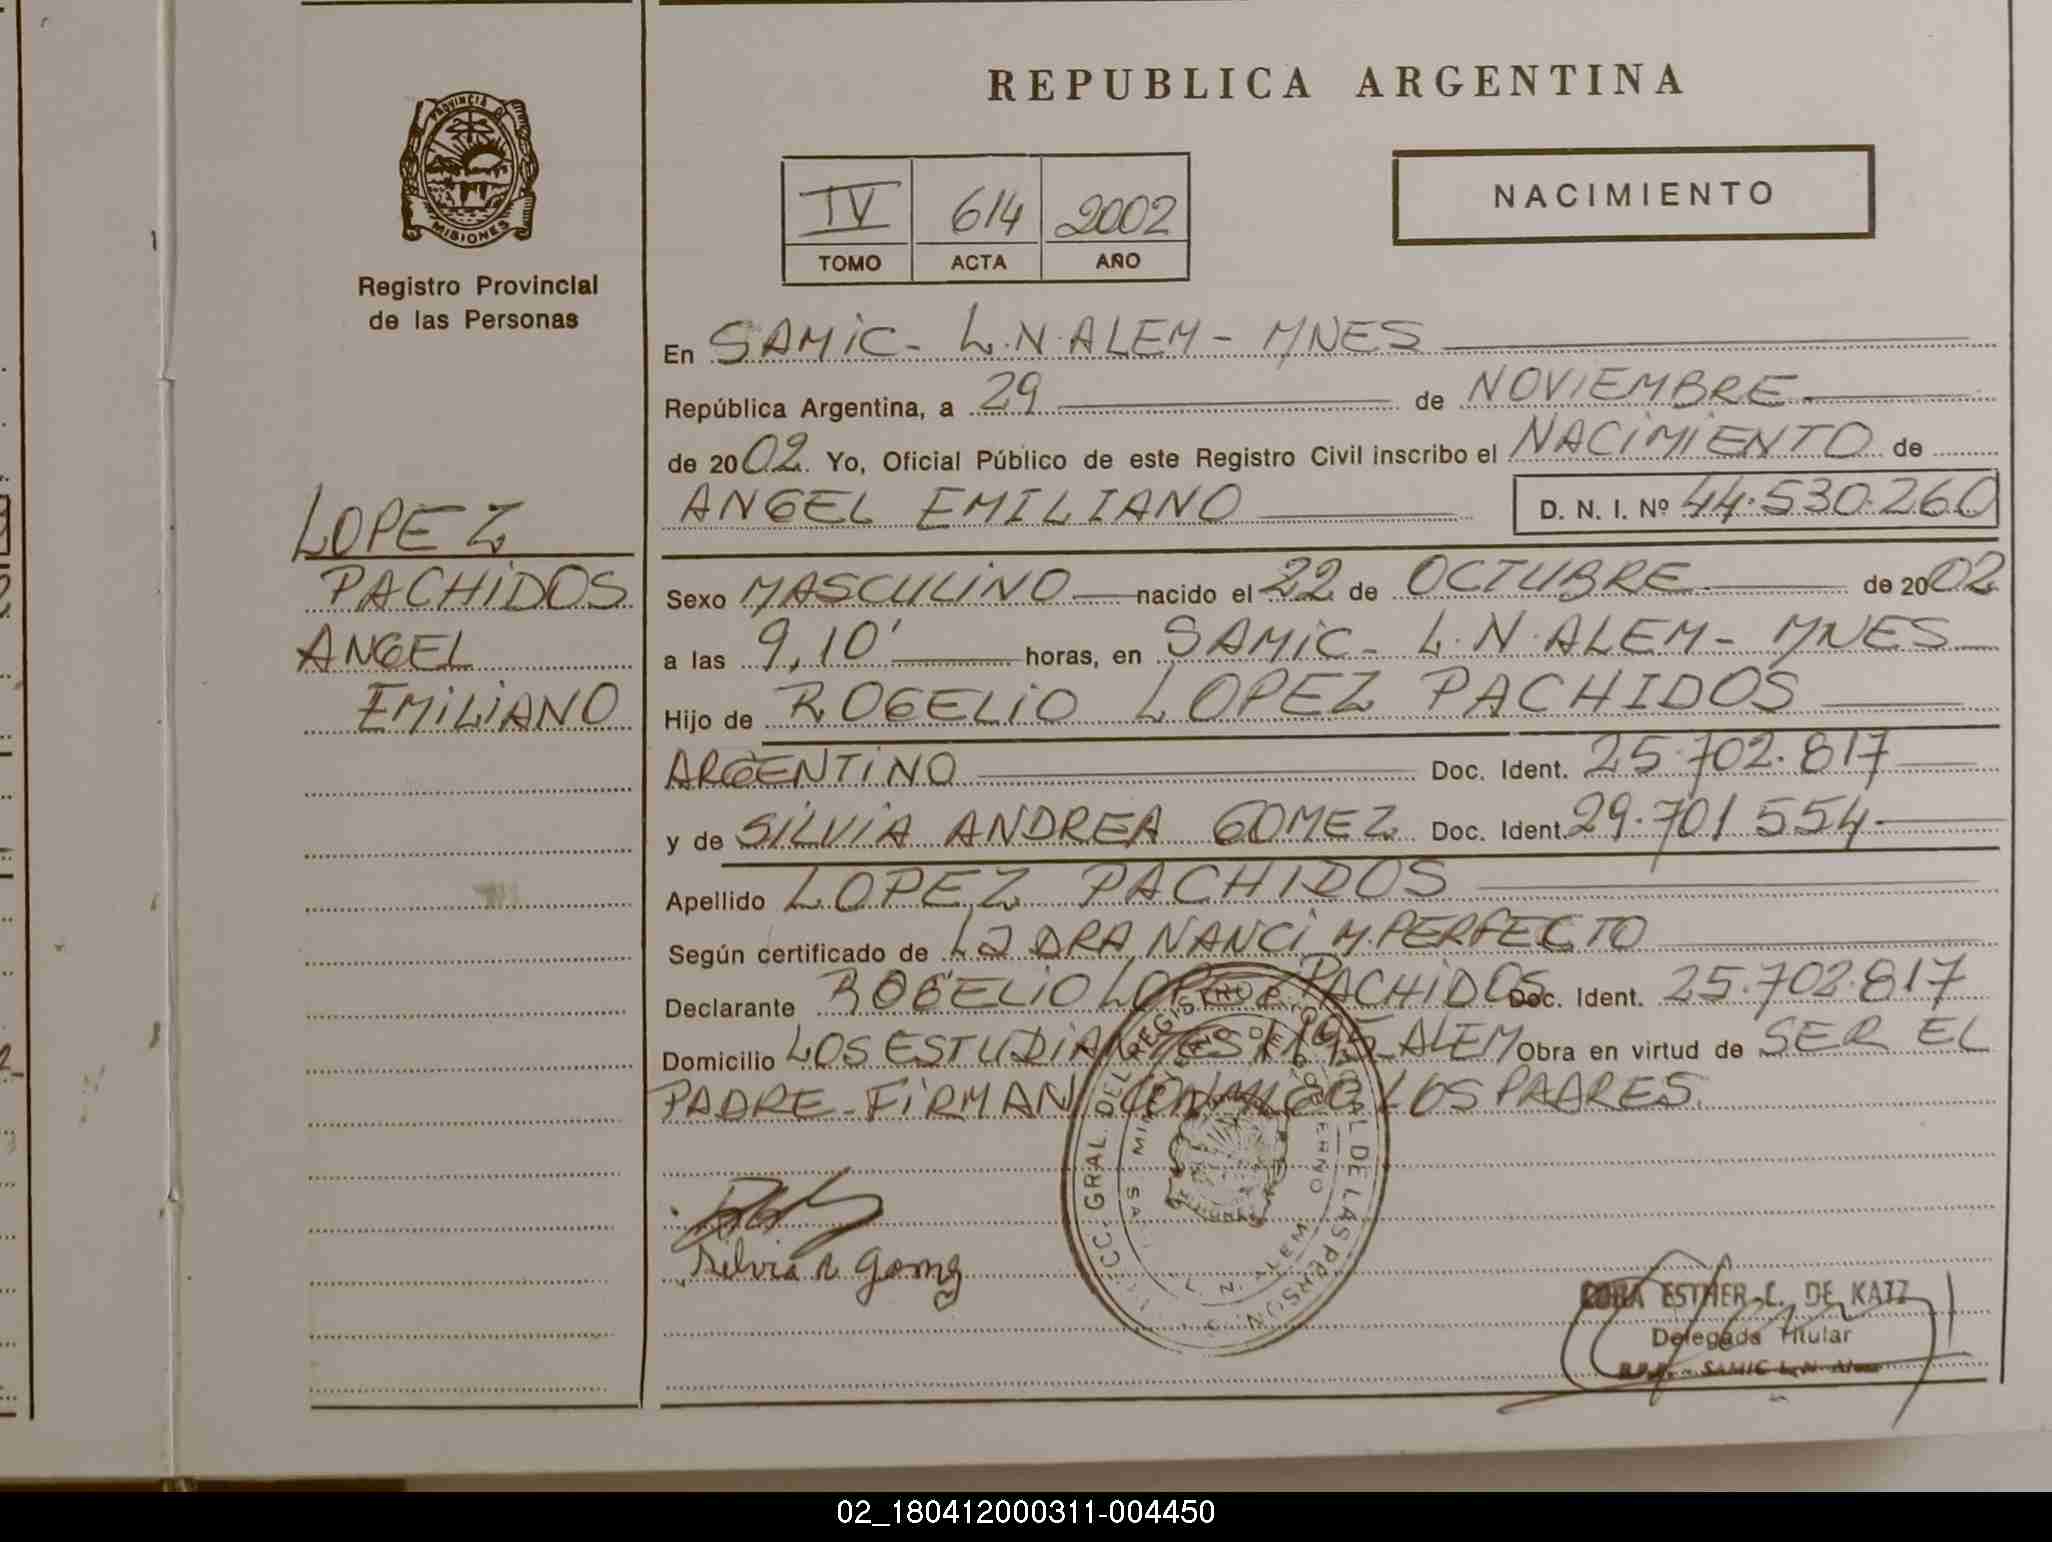 REPUBLICA ARGENTINA
PROVINCIA DE
MISIONES
Registro Provincial
de las Personas
IV 614 2002
TOMO ACTA AÑO
NACIMIENTO
En SAMIC - L.N. ALEM - MNES
República Argentina, a 29 de NOVIEMBRE
de 2002. Yo, Oficial Público de este Registro Civil inscribo el NACIMIENTO de
ANGEL EMILIANO D. N. I. Nº 44.530.260
LOPEZ
PACHIDOS
ANGEL
EMILIANO
Sexo MASCULINO nacido el 22 de OCTUBRE de 2002
a las 9,10' horas, en SAMIC - L.N. ALEM - MNES
Hijo de ROGELIO LOPEZ PACHIDOS
ARGENTINO Doc. Ident. 25.702.817
y de SILVIA ANDREA GOMEZ Doc. Ident. 29.701 554
Apellido LOPEZ PACHIDOS
Según certificado de La DRA NANCI M. PERFECTO
Declarante ROGELIO LOPEZ PACHIDOS Doc. Ident. 25.702.817
Domicilio LOS ESTUDIANTES ALEM Obra en virtud de SER EL
PADRE - FIRMAN CONMIGO LOS PADRES.
Silvia A Gomez
DE KATZ
Delegada Titular
SAMIC L.N. Alem
02_180412000311-004450